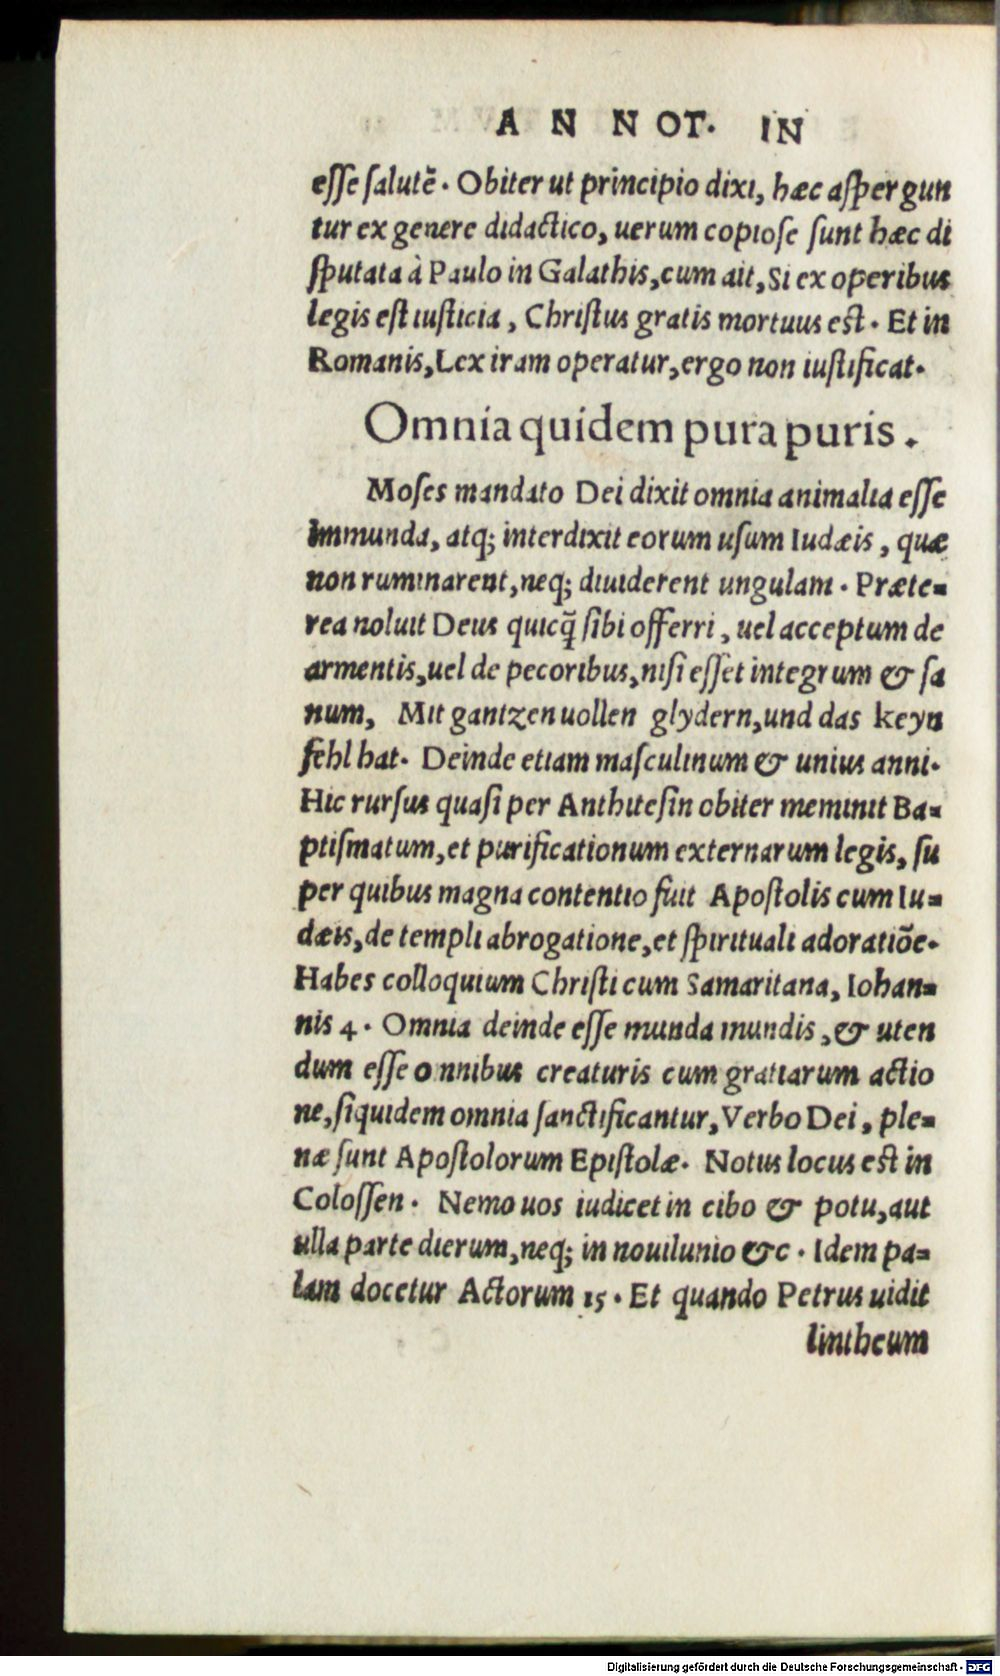 ANNOT. IN
esse salutē. Obiter ut principio dixi, hæc aspergun
tur ex genere didactico, uerum copiose sunt hæc di
sputata à Paulo in Galathis, cum ait, Si ex operibus
legis est iusticia, Christus gratis mortuus est. Et in
Romanis, Lex iram operatur, ergo non iustificat.
Omnia quidem pura puris.
Moses mandato Dei dixit omnia animalia esse
immunda, atq; interdixit eorum usum Iudæis, quæ
non ruminarent, neq; diuiderent ungulam. Præte=
rea noluit Deus quicq̃ sibi offerri, uel acceptum de
armentis, uel de pecoribus, nisi esset integrum & sa
num, Mit gantzen uollen glydern, und das keyn
fehl hat. Deinde etiam masculinum & unius anni.
Hic rursus quasi per Anthitesin obiter meminit Ba=
ptismatum, et purificationum externarum legis, su
per quibus magna contentio fuit Apostolis cum Iu=
dæis, de templi abrogatione, et spirituali adoratiōe.
Habes colloquium Christi cum Samaritana, Iohan=
nis 4. Omnia deinde esse munda mundis, & uten
dum esse omnibus creaturis cum gratiarum actio
ne, siquidem omnia sanctificantur, Verbo Dei, ple=
næ sunt Apostolorum Epistolæ. Notus locus est in
Colossen. Nemo uos iudicet in cibo & potu, aut
ulla parte dierum, neq; in nouilunio &c. Idem pa=
lam docetur Actorum 15. Et quando Petrus uidit
lintheum
Digitalisierung gefördert durch die Deutsche Forschungsgemeinschaft - DFG